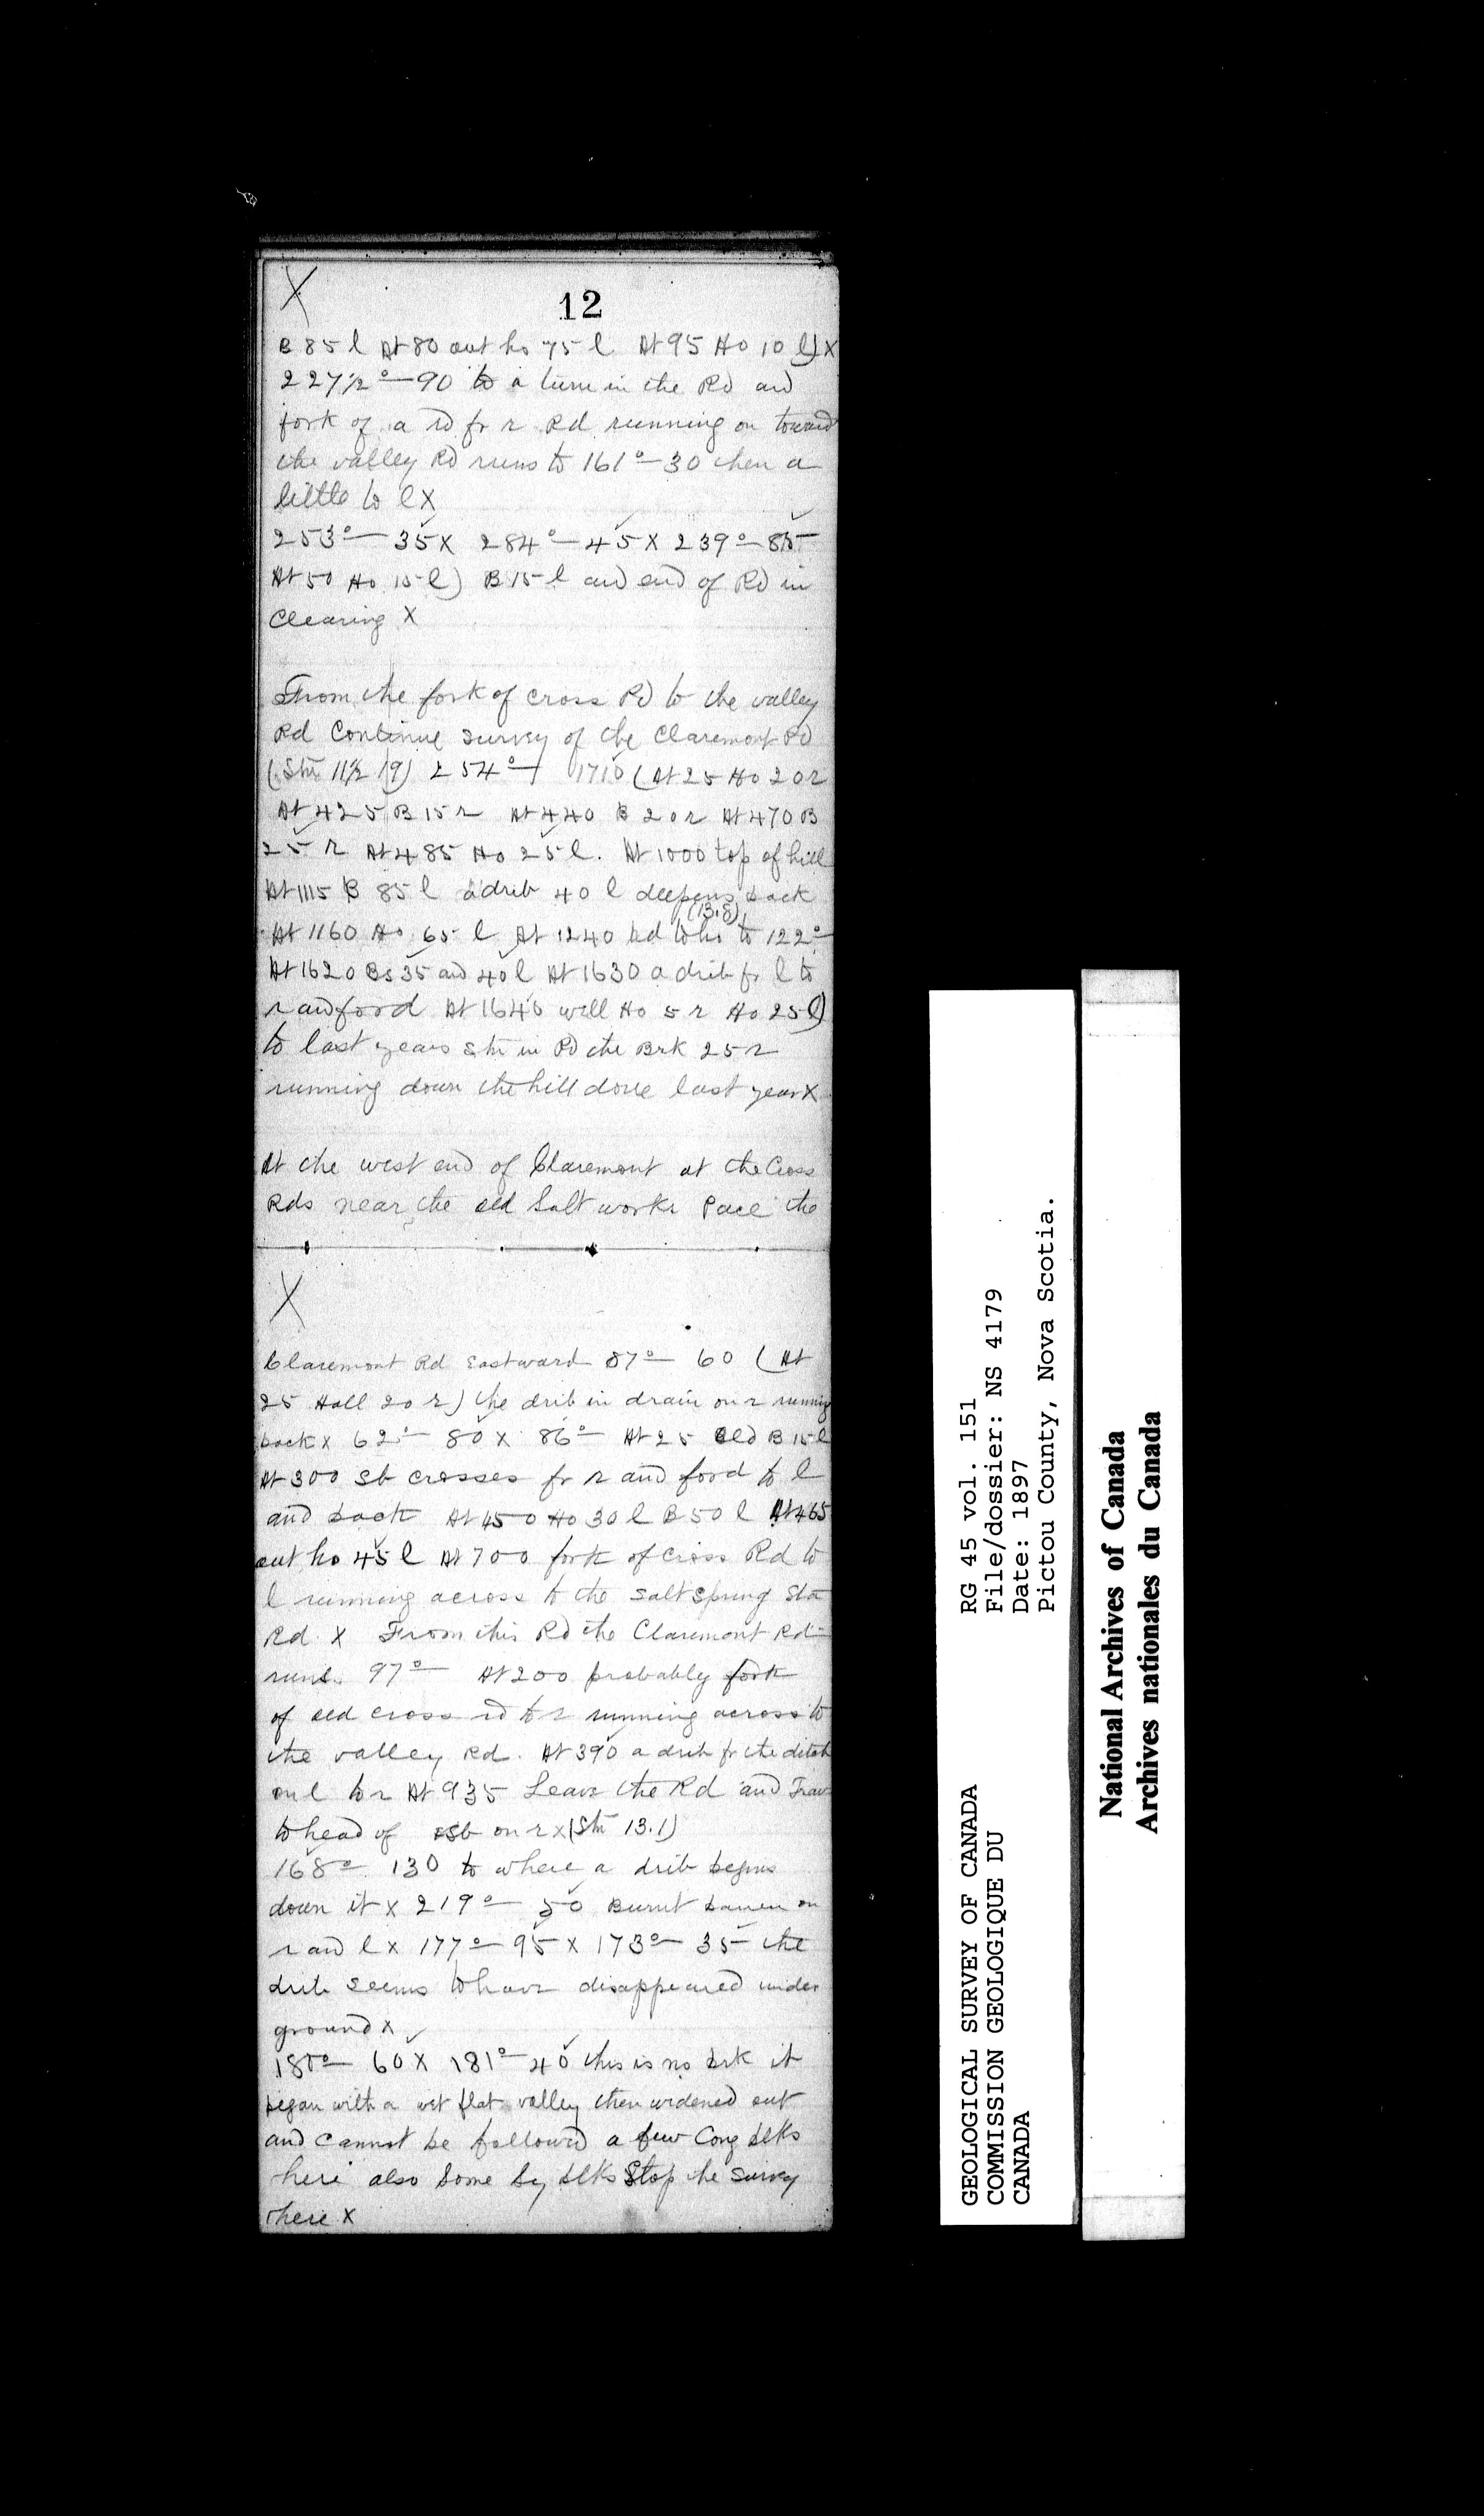 X
12
B 85 l At 80 out ho 75 l At 95 Ho 10 l) X
227½° — 90 to a turn in the Rd and
fork of a rd fr r Rd running on toward
the valley Rd runs to 161° — 30 then a
little to l X
253° — 35 X 284° — 45 X 239° — 85
At 50 Ho 15 l) B 15 l and end of Rd in
Clearing X
From the fork of cross Rd to the valley
Rd Continue survey of the Claremont Rd
(Stn 11½ 19) 254° — 1710 (At 25 Ho 20 r
At 425 B 15 r At 440 B 20 r At 470 B
25 r At 485 Ho 25 l. At 1000 top of hill
At 1115 B 85 l a drib 40 l deepens back
(13.8)
At 1160 Ho 65 l At 1240 Rd to ho to 122°
At 1620 Bs 35 and 40 l At 1630 a drib fr l to
r and ford At 1640 well Ho 5 r Ho 25 l)
to last years stn in Rd the Brk 25 r
running down the hill done last year X
At the west end of Claremont at the Cross
Rds near the old Salt works Pace the
X
Claremont Rd Eastward 87° — 60 (At
25 Hall 20 r) the drib in drain on r running
back X 62° — 80 X 86° — At 25 Old B 15 l
At 300 sb crosses fr r and ford to l
and back At 450 Ho 30 l B 50 l At 465
out ho 45 l At 700 fork of cross Rd to
l running across to the Salt Spring Sta
Rd X From this Rd the Claremont Rd
runs 97° — At 200 probably fork
of old cross rd to r running across to
the valley Rd. At 390 a drib fr the ditch
on l to r At 935 Leave the Rd and Trav
to head of sb on r X (Stn 13.1)
168° 130 to where a drib begins
down it X 219° — 50 Burnt barren on
r and l X 177° — 95 X 173° — 35 the
drib seems to have disappeared under
ground X
180° — 60 X 181° — 40 this is no brk it
began with a wet flat valley then widened out
and cannot be followed a few Cong blks
here also some Sy blks Stop the survey
there X
GEOLOGICAL SURVEY OF CANADA
COMMISSION GEOLOGIQUE DU
CANADA
RG 45 vol. 151
File/dossier: NS 4179
Date: 1897
Pictou County, Nova Scotia.
National Archives of Canada
Archives nationales du Canada